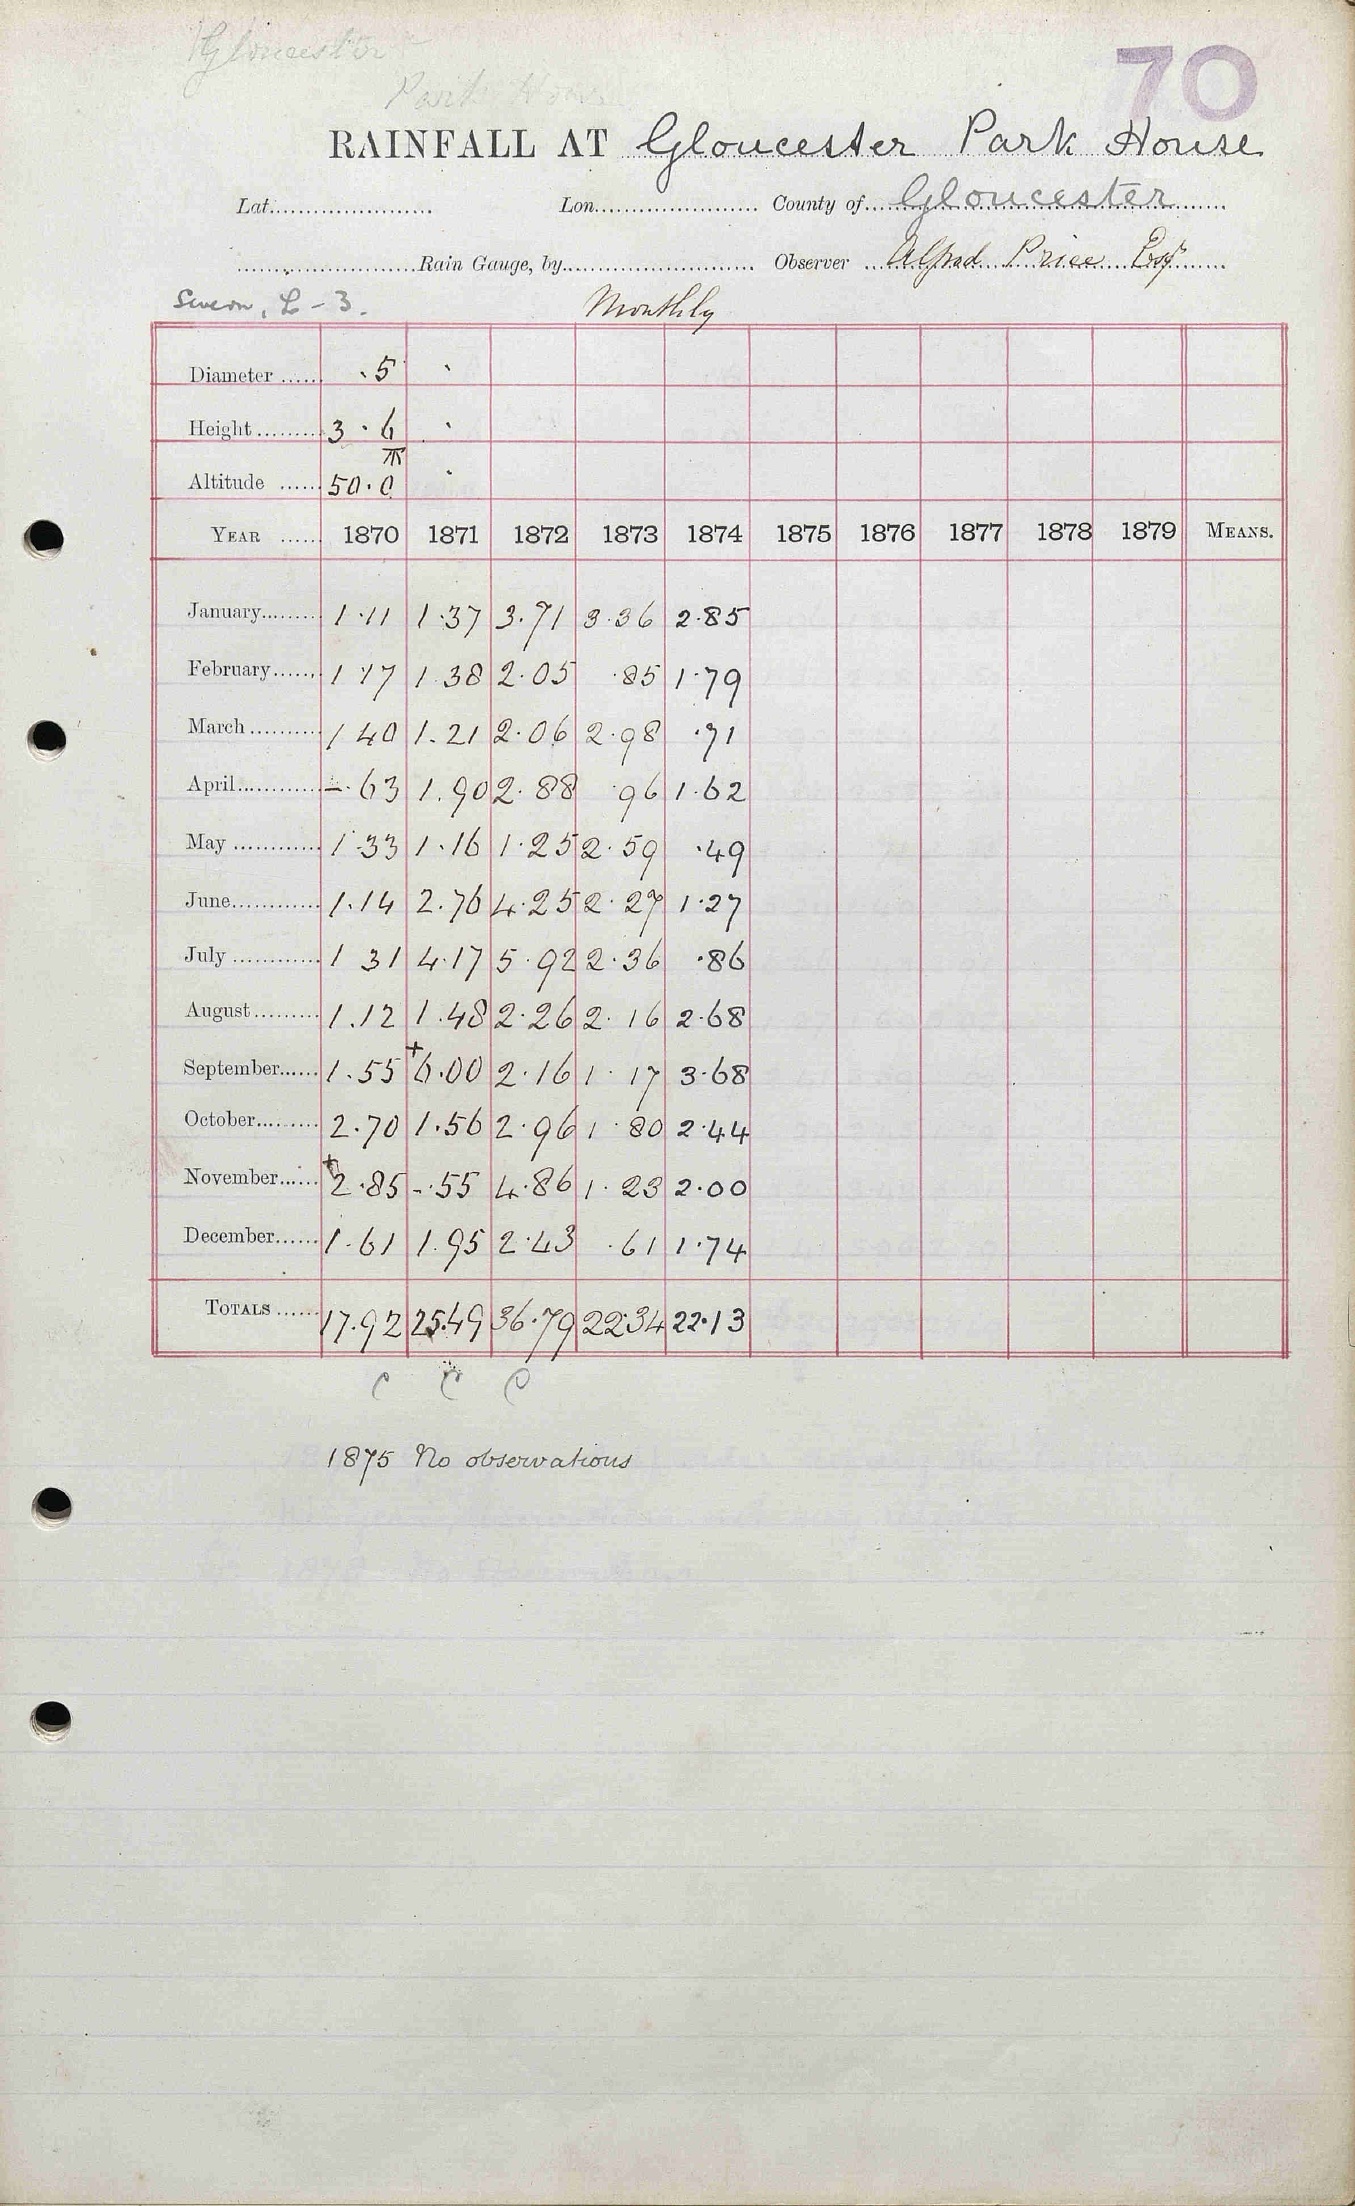 Gloucester
Park House
70
RAINFALL AT Gloucester Park House
Lat. Lon. County of Gloucester
Rain Gauge, by Observer Alfred Price Esqr
Severn, L - 3. Monthly
Diameter 5
Height 3 . 6
Altitude 50.0
YEAR 1870 1871 1872 1873 1874 1875 1876 1877 1878 1879 MEANS.
January 1.11 1.37 3.71 3.36 2.85
February 1.17 1.38 2.05 .85 1.79
March 1 40 1.21 2.06 2.98 .71
April -.63 1.90 2.88 .96 1.62
May 1.33 1.16 1.25 2.59 .49
June 1.14 2.76 4.25 2.27 1.27
July 1 31 4.17 5.92 2.36 .86
August 1.12 1.48 2.26 2.16 2.68
September 1.55 +6.00 2.16 1.17 3.68
October 2.70 1.56 2.96 1.80 2.44
November +2.85 -.55 4.86 1.23 2.00
December 1.61 1.95 2.43 .61 1.74
TOTALS 17.92 25.49 36.79 22.34 22.13
C C C
1875 No observations